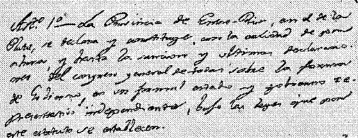 Art.º 1º - La Provincia de Entre-Rios, en el de la
Plata, se declara y constituye, con la calidad de por
ahora; y hasta la sancion y ultimas declaracio-
ones del congreso general de todas sobre la forma
de Gobierno, en un formal estado y gobierno re-
presentativo independiente, bajo las leyes que por
este estatuto se establecen.